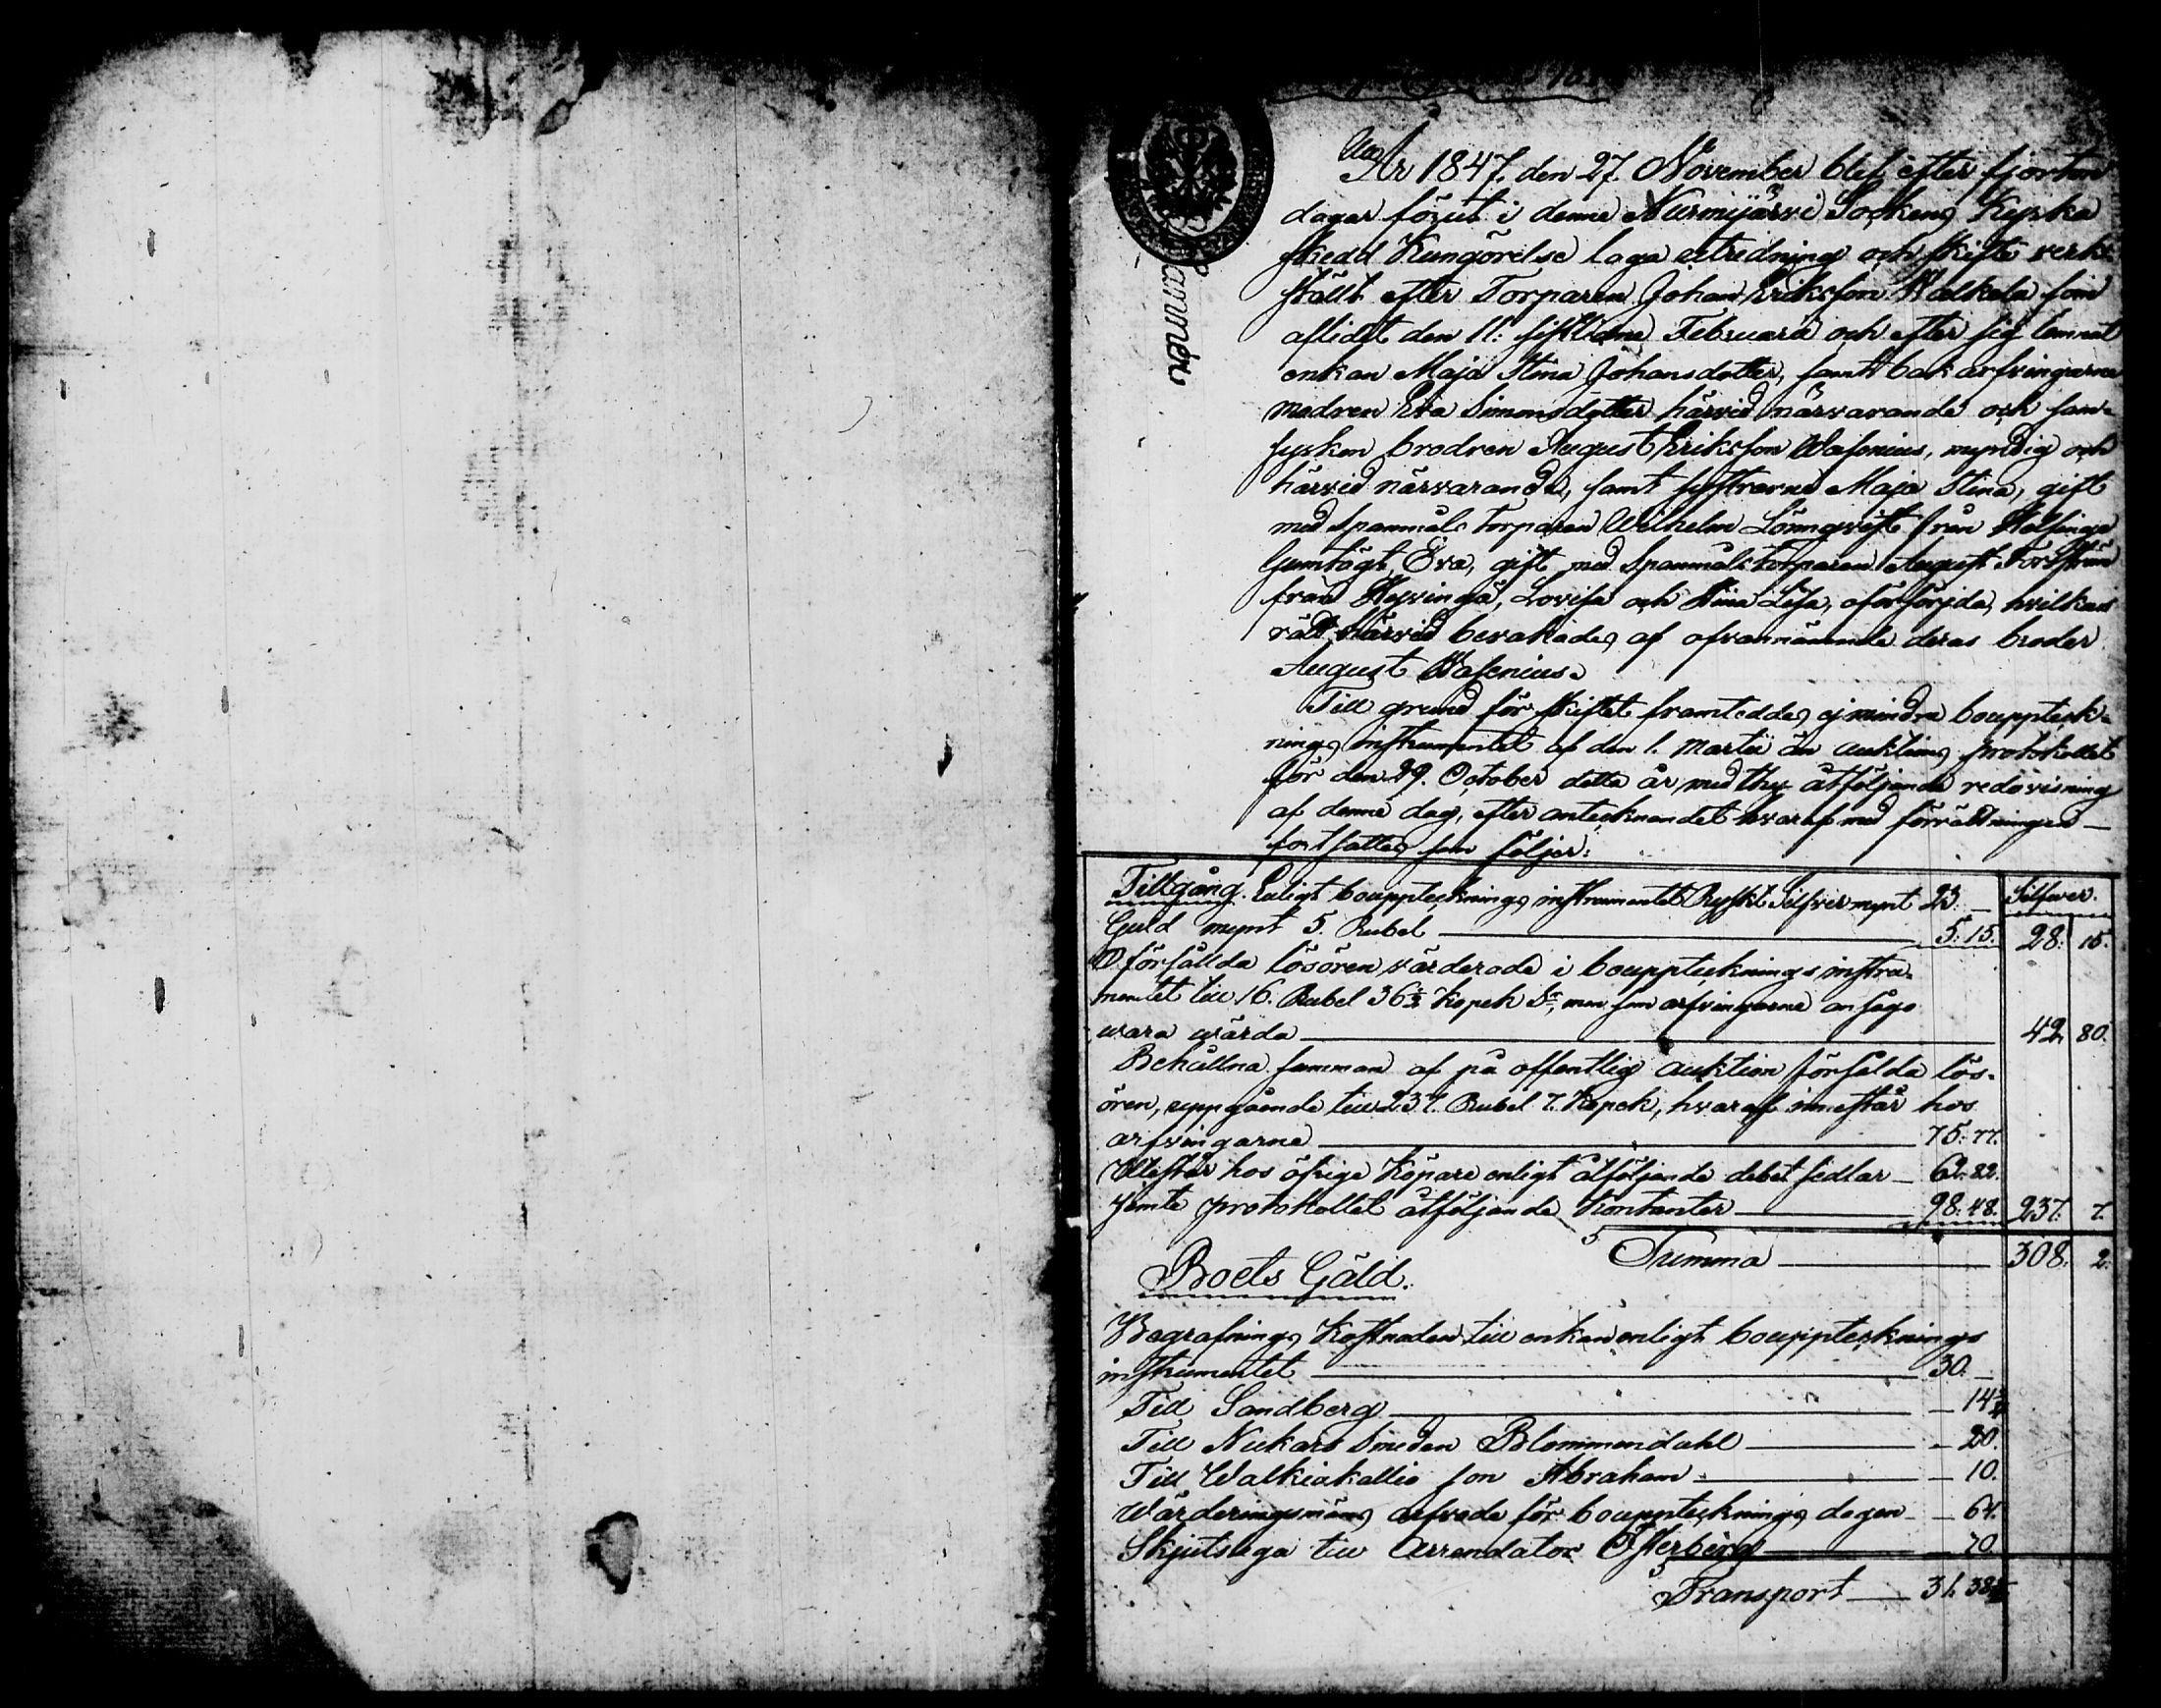 År 1847. den 27. November blef efter fjorton
dagar förut i denne Nurmijärvi Sockens Kyrka
skedd Kungörelse laga utredning och skifte verk-
stäldt efter Torparen Johan Eriksson Walkela som
aflidit den 11: sistlidne Februarii och efter sig lemnat
enkan Maja Stina Johansdotter, samt bak arfvingarne
modren Eva Simonsdotter härvid närvarande och sam-
syskon brodren August Eriksson Wasenius, myndig och
härvid närvarande, samt systrarne Maja Stina, gift
med Spannmåls Torparen Wilhelm Lönnqvist från Helsinge
Gumtägt, Eva, gift med Spannmåls torparen August Forsström
från Hyvingä, Lovisa och Stina Lisa, oförsörjda, hvilkas
rätt härvid bevakades af ofvannämnde deras broder
August Wasenius.
Till grund för skiftet framteddes ej mindre bouppteck-
nings instrumentet af den 1. Martii än auktions protokollet
för den 29. October detta år med thy åtföljande redovisning
af denne dag, efter antecknandet hvaraf med förrättningen
fortsattes som följer:
Tillgång. Enligt boupptecknings instrumentet Ryskt Silfver mynt 23. — Silfwer.
Guld mynt 5. Rubel — 5: 15. 28: 15.
Oförsållda lösören värderade i bouppteckningsinstru-
mentet till 16. Rubel 36½ Kopek Sr, men som arfvingarne ansågo
wara wärda — 42 80.
Behållna summan af på offentlig auktion försålda lös-
ören, uppgående till 237. Rubel 7. Kopek, hvaraf innestår hos
arfvingarne — 75: 77.
Utestår hos öfrige Köpare enligt åtföljande debet sedlar — 62: 82.
Jemte protokollet åtföljande Kontanter — 98: 48. 237: 7.
Summa — 308. 2.
Boets Gäld.
Begrafnings Kostnaden till enkan enligt bouppteckning s
instrumentet — 30. —
Till Sandberg — 14¾
Till Nuckars Smeden Blommendahl — 20.
Till Walkiakallio son Abraham — 10.
Wärderingsmäns arfvode för bouppteckning s dagen — 64.
Skjutslega till Arrendator Österberg — 70.
Transport — 31. 38¾